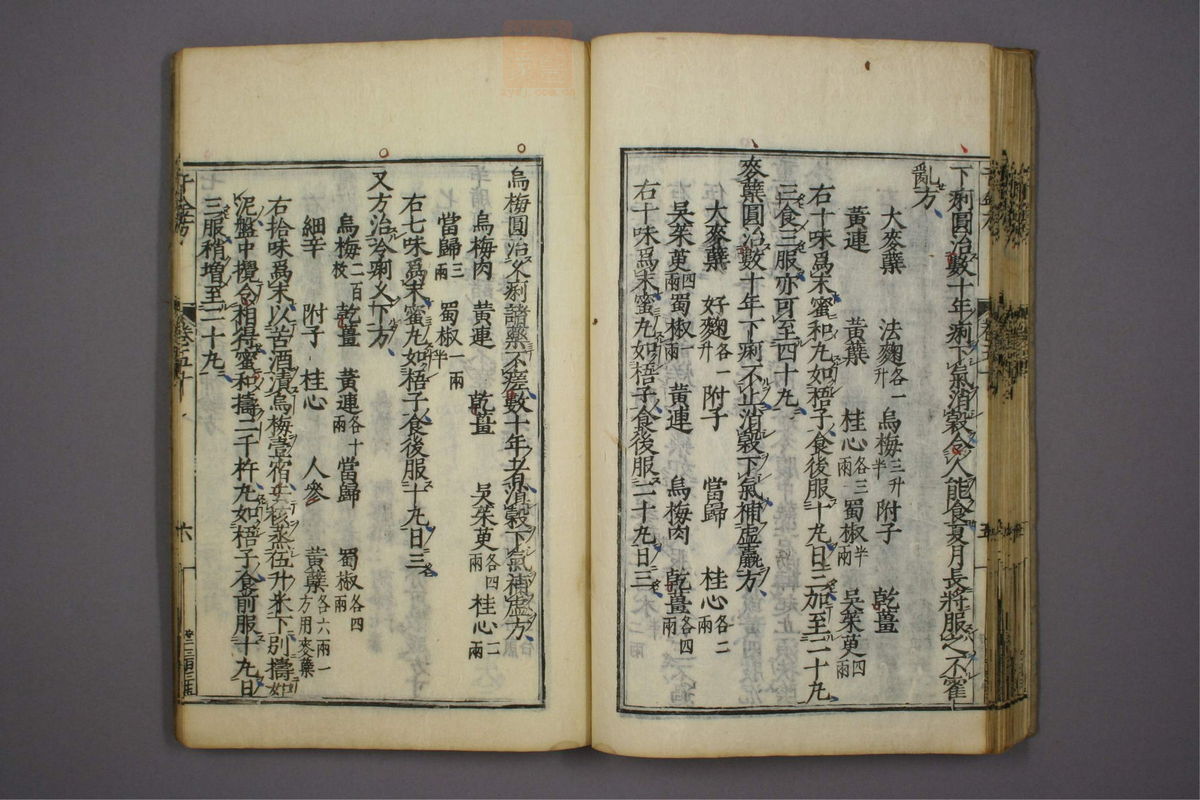 下痢圓治數十年痢下氣消穀令人能食夏月長將服之不霍
亂方
大麥蘖 法麴各一升 烏梅三升半 附子 乾薑
黃連 黃蘗 桂心各三兩 蜀椒半兩 吳茱萸四兩
右十味爲末蜜和丸如梧子食後服十丸日三加至二十丸
三食三服亦可至四十丸
麥蘖圓治數十年下痢不止消穀下氣補虛羸方
大麥蘖 好麴各一升 附子 當歸 桂心各二兩
吳茱萸四兩 蜀椒一兩 黃連 烏梅肉 乾薑各四兩
右十味爲末蜜丸如梧子食後服二十丸日三
烏梅圓治久痢諸藥不瘥數十年者消穀下氣補虛方
烏梅肉 黃連 乾薑 吳茱萸各四兩 桂心二兩
當歸三兩 蜀椒一兩半
右七味爲末蜜丸如梧子食後服十丸日三
又方治冷痢久下方
烏梅二百枚 乾薑 黃連各十兩 當歸 蜀椒各四兩
細辛 附子 桂心 人參 黃蘗各六兩一方用麥蘖
右拾味爲末以苦酒漬烏梅壹宿去核蒸伍升米下別擣如
泥盤中攪令相得蜜和擣二千杵丸如梧子食前服十丸日
三服稍增至二十丸